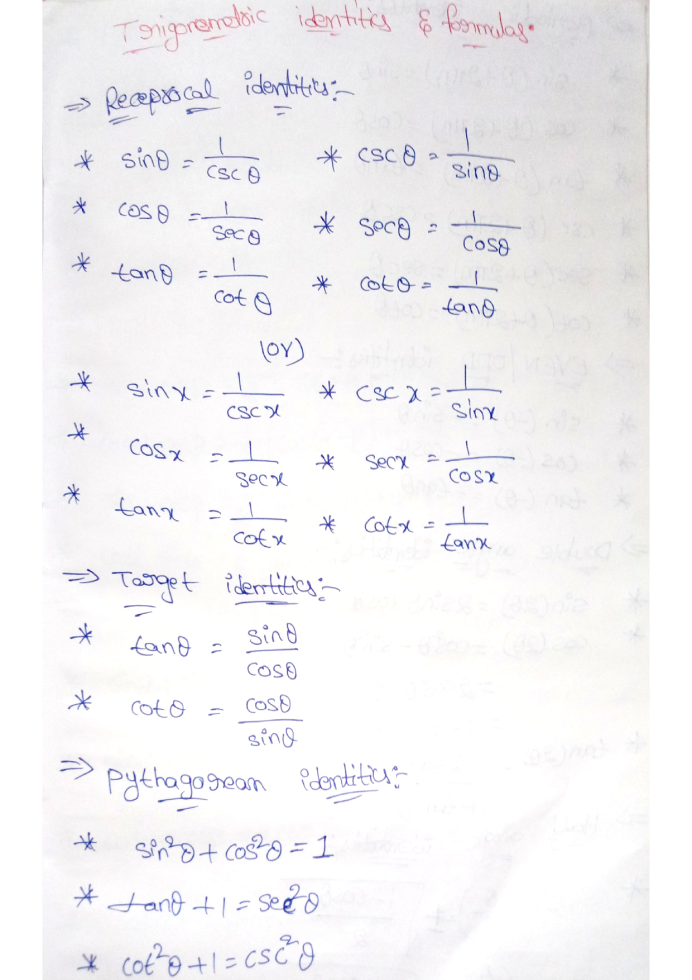 Trigonometric identitis & formulas.
⇒ Receprocal identitis:-
* sinθ = 1/cscθ * cscθ = 1/sinθ
* cosθ = 1/secθ * secθ = 1/cosθ
* tanθ = 1/cotθ * cotθ = 1/tanθ
(or)
* sinx = 1/cscx * cscx = 1/sinx
* cosx = 1/secx * secx = 1/cosx
* tanx = 1/cotx * cotx = 1/tanx
⇒ Target identitis:-
* tanθ = sinθ/cosθ
* cotθ = cosθ/sinθ
⇒ pythagorean identitis:-
* sin²θ + cos²θ = 1
* tanθ + 1 = sec²θ
* cot²θ + 1 = csc²θ